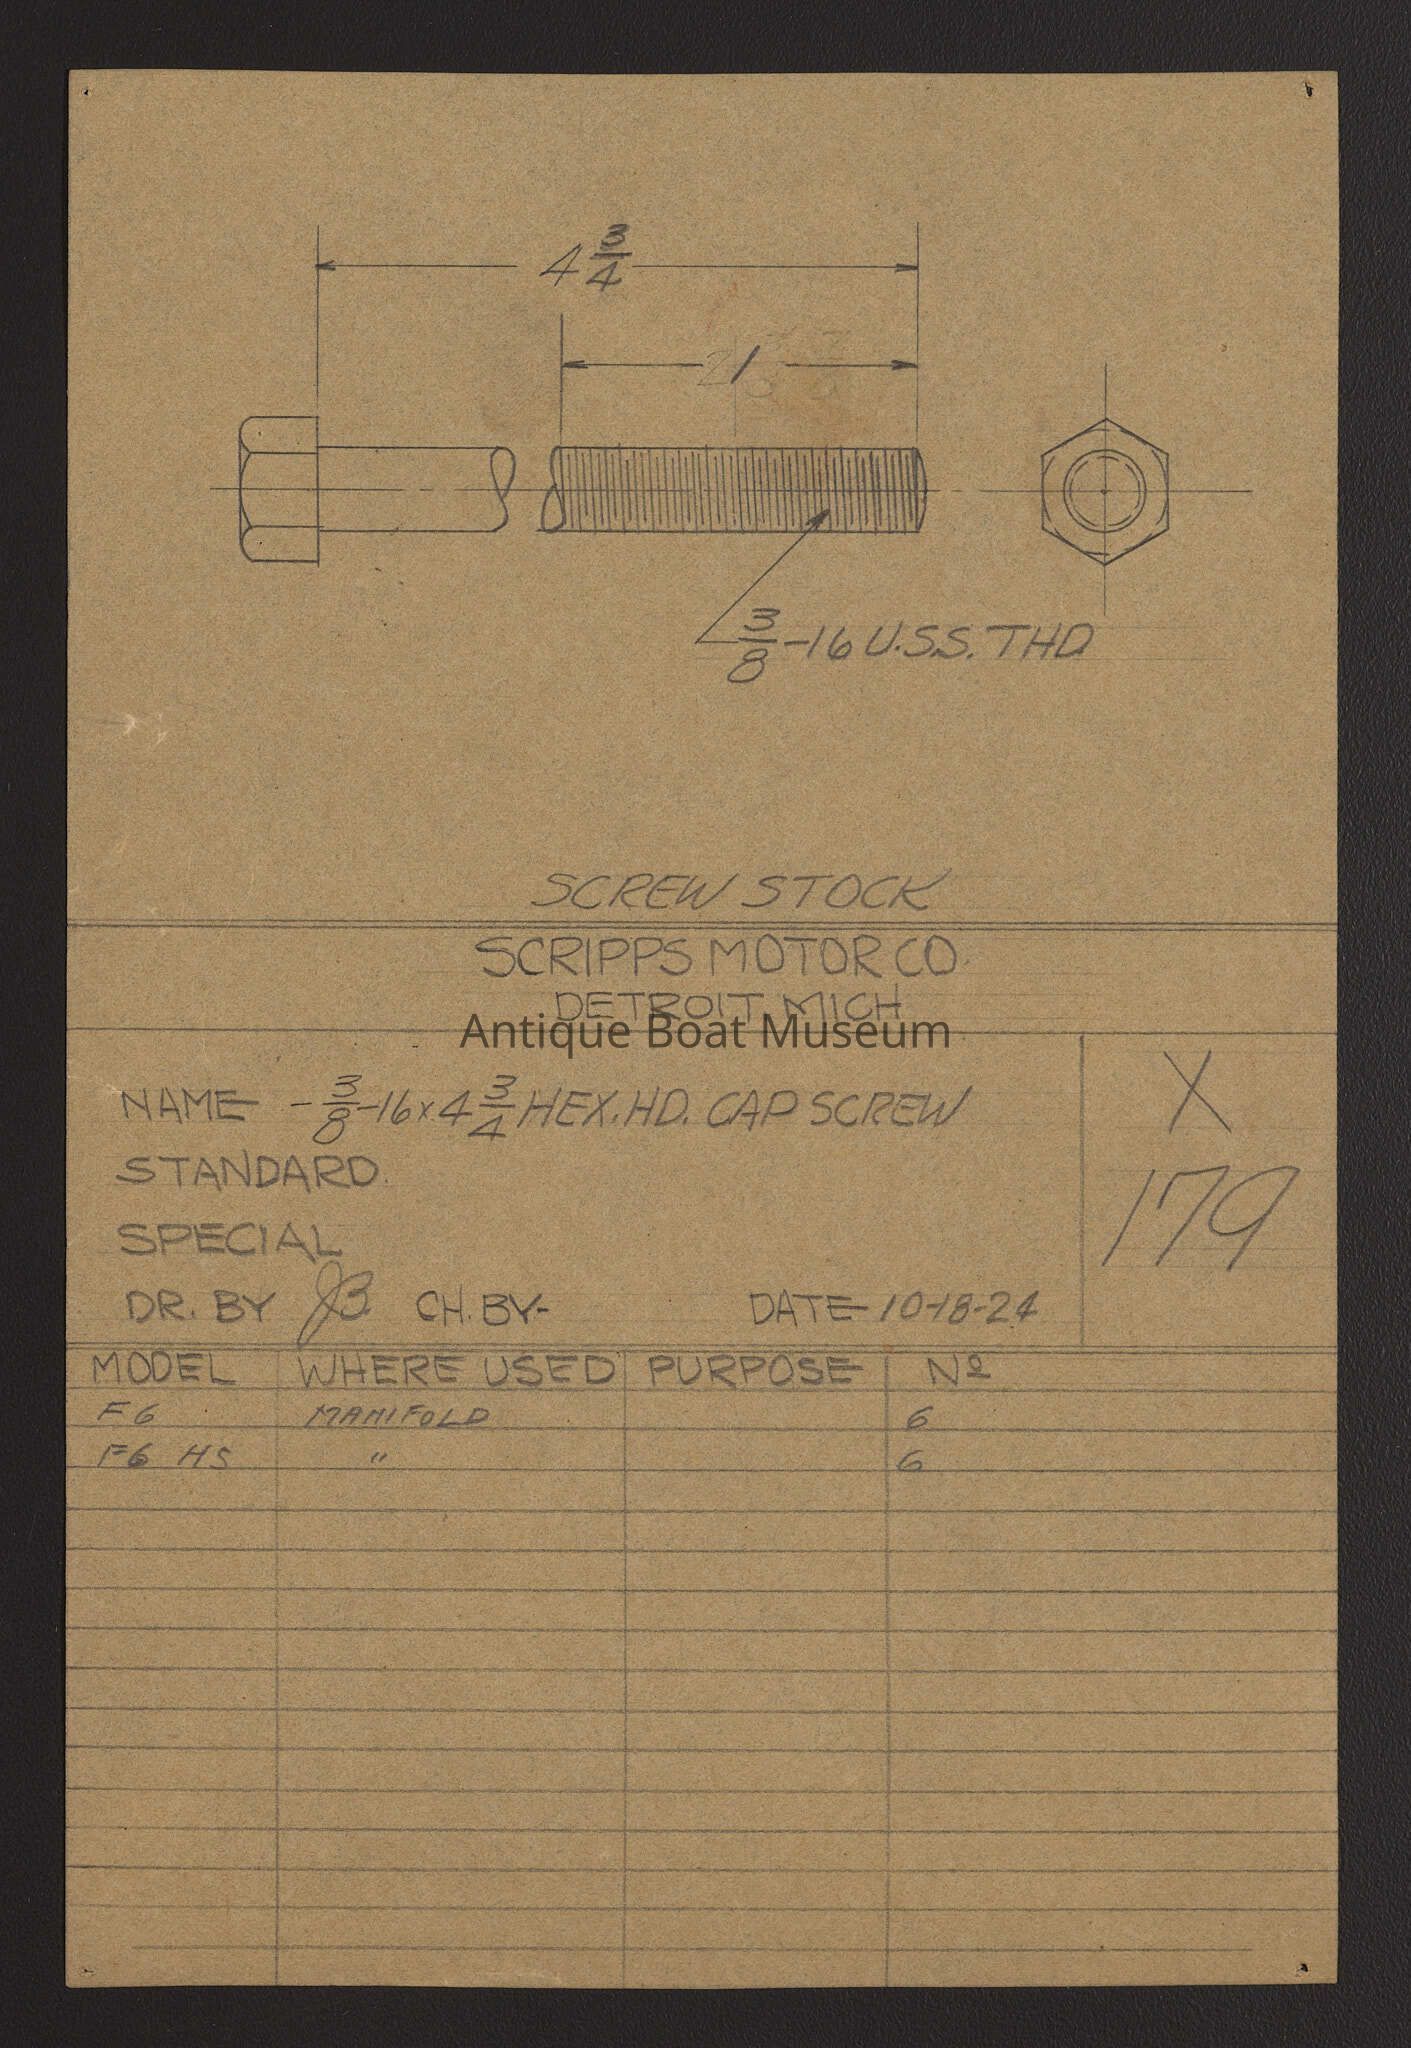 4 3/4
1
3/8-16 U.S.S. THD
SCREW STOCK
SCRIPPS MOTOR CO.
DETROIT MICH
Antique Boat Museum
NAME -3/8-16x4 3/4 HEX. HD. CAP SCREW
X
179
STANDARD.
SPECIAL
DR. BY JB. CH. BY- DATE-10-18-24
MODEL WHERE USED PURPOSE Nº
F6 MANIFOLD 6
F6 HS " 6